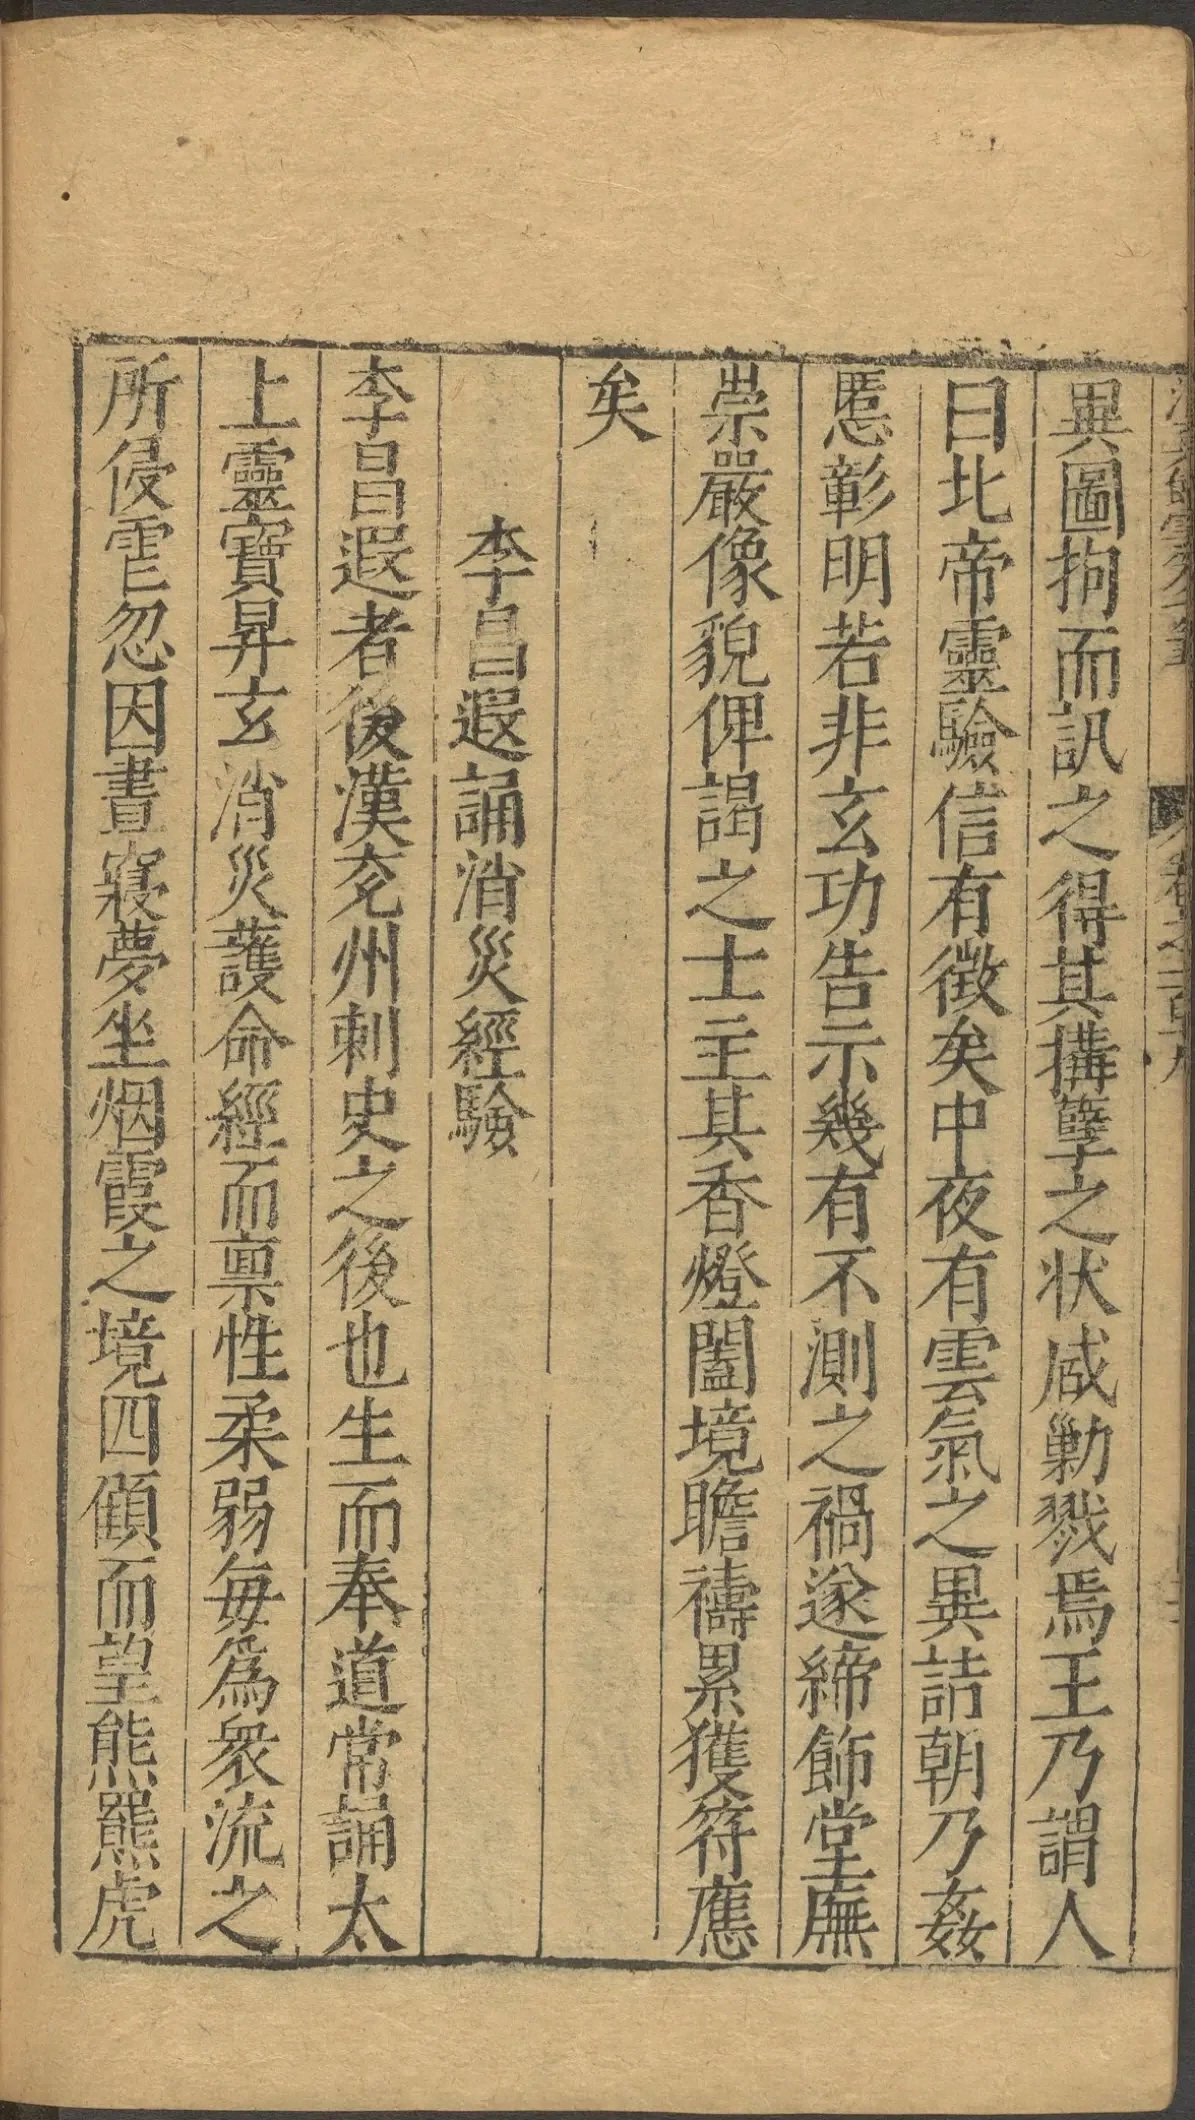 卷之一百十九
異圖拘而訊之得其搆孽之状咸勦戮焉王乃謂人
曰北帝靈驗信有徵矣中夜有雲氣之異詰朝乃姦
慝彰明若非玄功告示幾有不測之禍遂締飾堂廡
崇嚴像貌俾謁之士主其香燈闔境瞻禱累獲符應
矣
李昌遐誦消災經驗
李昌遐者後漢兖州刺史之後也生而奉道常誦太
上靈寶昇玄消災護命經而禀性柔弱每爲衆流之
所侵雹忽因晝寢夢坐烟霞之境四顧而望熊羆虎